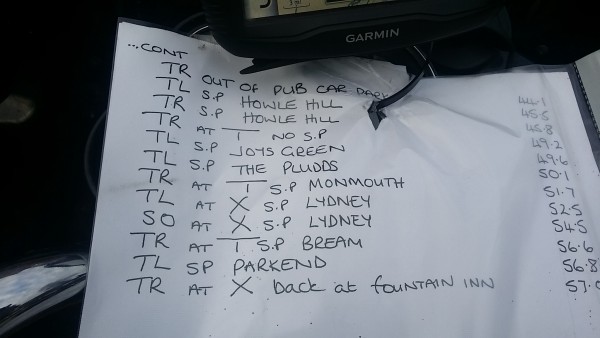 GARMIN
...CONT
TR OUT OF PUB CAR PARK 44.1
TL S.P HOWLE HILL 45.5
TR S.P HOWLE HILL 45.8
TR AT T NO S.P 49.2
TL S.P JOYS GREEN 49.6
TL S.P THE PLUDDS 50.1
TR AT T S.P MONMOUTH 51.7
TL AT X S.P LYDNEY 52.5
SO AT X S.P LYDNEY 54.5
TR AT T S.P BREAM 56.6
TL SP PARKEND 56.8
TR AT X back at fountain INN 57.0